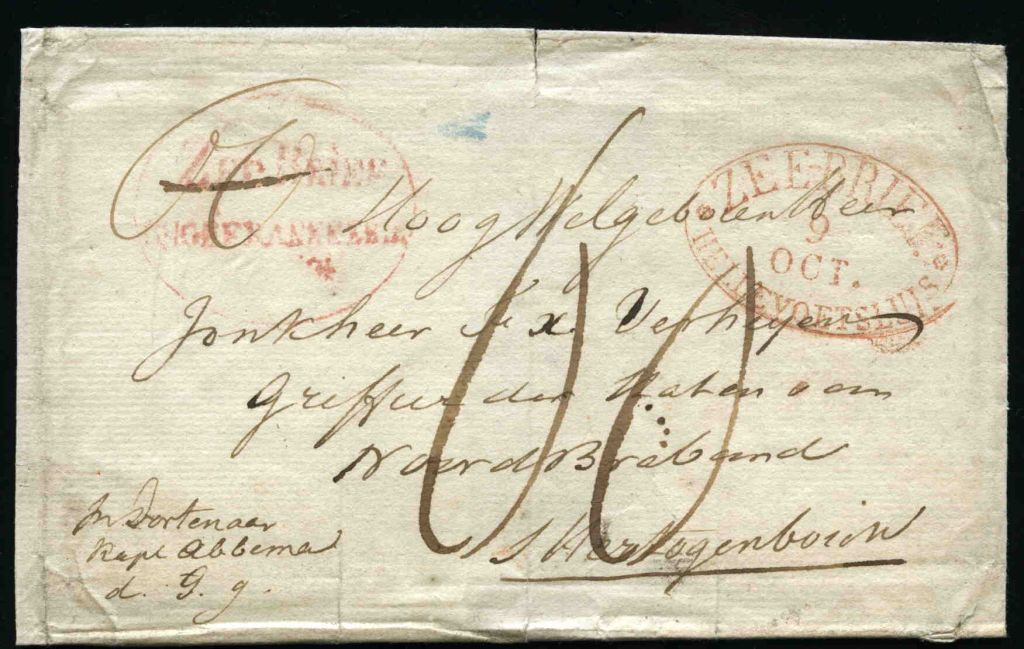 ZEE BRIEF
ONGEFRANKEERD
ZEE-BRIEF
9
OCT.
HELLEVOETSLUIS
Hoog Welgeboren Heer
Jonkheer F. X. Verheyen
Griffier der Staten van
Noord Braband
s Hertogenbosch
Kapt Abbema
d. G. g.